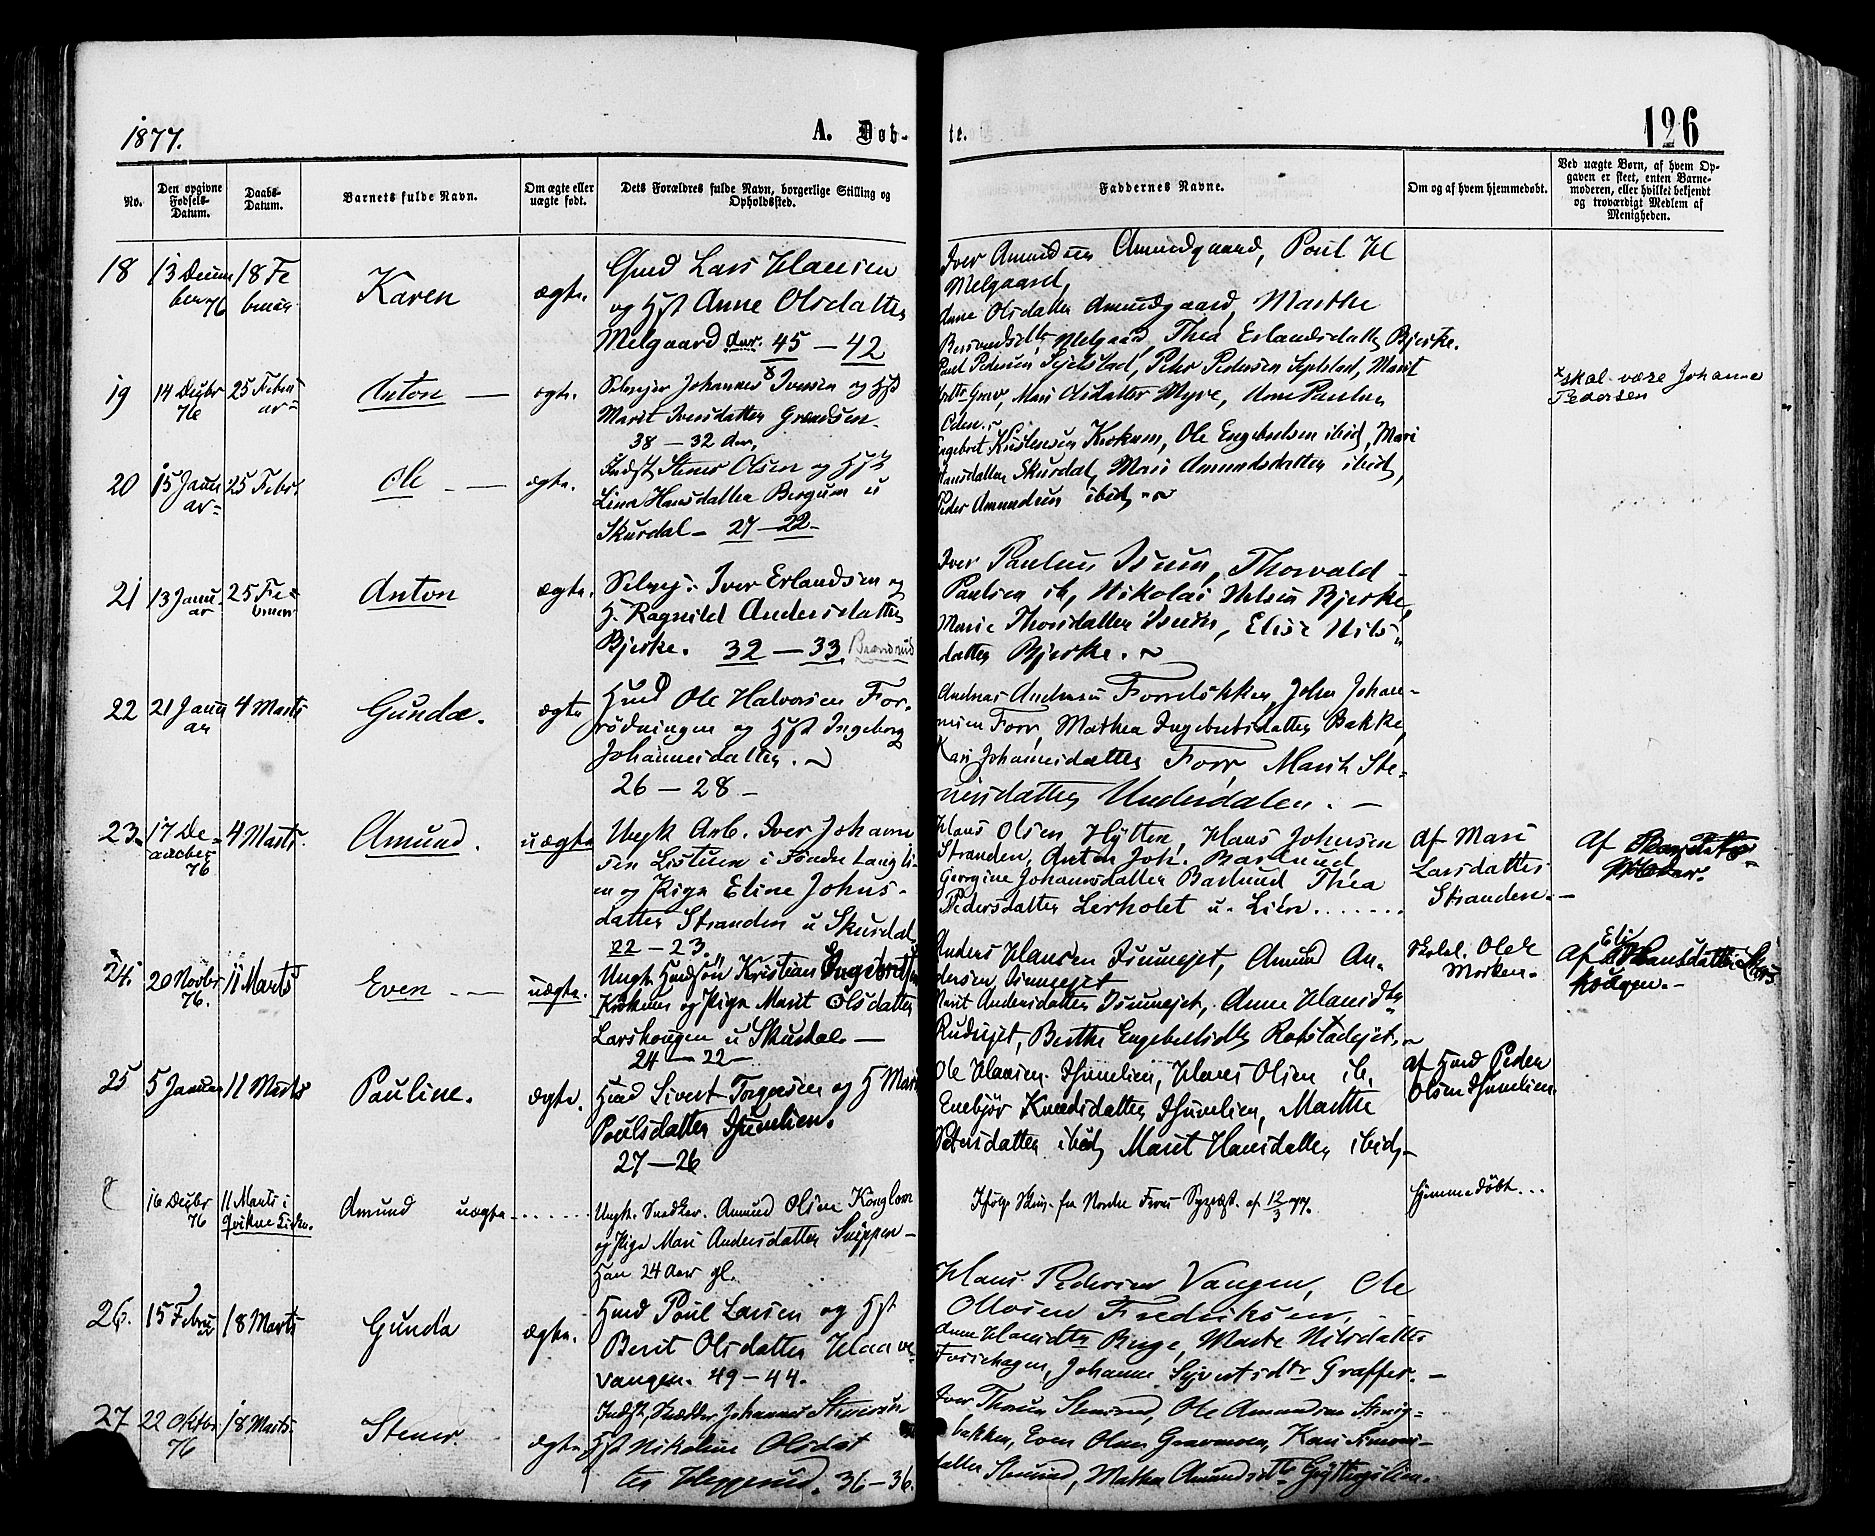 1877.
A. Døb-
te.
126
No.
Den opgivne Fødsels-Datum.
Daabs-Datum.
Barnets fulde Navn.
Om ægte eller uægte født.
Dets Forældres fulde Navn, borgerlige Stilling og Opholdssted.
Faddernes Navne.
Om og af hvem hjemmedøbt.
Ved uægte Børn, af hvem Op-
gaven er skeet, enten Barne-
moderen, eller hvilket bekjendt
og troværdigt Medlem af
Menigheden.
18
13 Decem
ber 76
18 Fe
bruar
Karen
ægte.
Gmd Lars Hansen
og Hst Anne Olsdatter
Melgaard Aar. 45 – 42
Iver Amundsen Amundgaard, Poul H
Melgaard,
Anne Olsdatter Amundgaard, Marthe
Melgaard, Thea Erlandsdatter Bjerke.
19
14 Decbr
76
25 Febru
ar
Anton
ægte.
Selvejer Johannes Iversen og Hst
Marit Iversdatter Grændsen
38 – 32 Aar,
Poul Pedersen Sjelstad, Peter Pedersen Sjelstad, Marit
Mari Olsdatter Myre, Anne Paulsen
Oden.
x skal være Johanne
Pedersen
20
15 Janu
ar
25 Febr.
Ole
ægte.
Indst. Stener Olsen og Hst
Lina Hansdatter Bergum u
Skurdal – 27 – 22 –
Engebret Kristensen Krokum, Ole Engebretsen ibid, Mari
Hansdatter Skurdal, Mari Amundsdatter ibid,
Peder Amundsen ibid
21
13 Janu
ar
25 Fe-
bruar
Anton
ægte.
Selvej. Iver Erlandsen og
H. Ragnild Andersdatter
Bjerke. 32 – 33 Brændrud
Iver Paulsen Isum, Thorvald
Paulsen ib, Nikolai Nelsen Bjerke,
Marie Thorsdatter Isum, Elise Nils
datter Bjerke.
22
21 Janu
ar
4 Marts
Gunda.
ægte
Hmd Ole Halvorsen For-
rödningen og Hst Ingeborg
Johannesdatter.
26 – 28 –
Andreas Andersen Forrelökken, John Johan-
nesen Forr, Mathea Ingebretsdatter Bakke,
Kari Johannesdatter Forr, Marit Ste-
nersdatter Undersdalen. –
23.
17 De-
cember
76
4 Marts.
Amund.
uægte
Ungk Arb. Iver Johanne
sen Listuen i Søndre
og Pige Eline Johns-
datter Stranden u Skurdal
22 – 23.
Hans Olsen Hytten, Hans Johnsen
Stranden, Anton Joh. Barlund
Georgine Johannsdatter Barlund, Thea
Pedersdatter Lerholet u. Lien
Af Mari
Larsdatter
Stranden. –
Af
24.
20 Novbr
76.
11 Marts
Even
uægte.
Ungk. Gmdsøn Kristian Ingebretsen
Krokum og Pige Marit Olsdatter
Larshougen u Skurdal –
24 – 22 –
Anders Hansen Isumejet, Amund An-
dersen Isumejet
Marit Andersdatter Isumejet, Anne Hansdtr
Rudsejet, Berthe Engebretsdtr Rolstadejet
Skolel. Ole
Morken. –
Af Eli Hansdatter Lars
hougen. –
25
5 Januar
11 Marts
Pauline.
ægte.
Hmd Sivert Torgersen og H Mari
Poulsdatter Isumlien.
27 – 26
Ole Hansen Isumlien, Hans Olsen ib,
Enebjør Knudsdatter Isumlien, Marthe
Petersdatter ibid, Marit Hansdatter ibid, –
Af Hmd Peder
Olsen Isumlien
16 Decbr
76
11 Marts i
Qvikne Kirke.
Amund
uægte
Ungk. Snedker. Amund Olsen Konglom
og Pige Mari Andersdatter Snippen –
Han 24 Aar gl.
Ifølge Skriv. fra Nordre Frons Sognepræst. af 12/3 77.
hjemmedøbt
26.
15 Februar
18 Marts
Gunda
ægte.
Hmd Poul Larsen og Hst
Berit Olsdatter Haave
vangen. 49 – 44.
Hans Pedersen Vangen, Ole
Olosen Fredriksen,
Anne Hansdtr Brige, Marte Nilsdatter
Forrehagen, Johanne Syvertsdtr Graffer. –
27
22 Oktbr
76
18 Marts
Stener.
ægte
Indst, Snedker, Johannes Stenersen
Hst Nikoline Olsdat
ter Heggerud. 36 – 36.
Iver Thorsen Stenerud, Ole Amundsen Stenig-
bakken, Even Olsen Gravmoen, Kari Simens-
datter Stenerud, Mathea Amundsdtr Gryttingslien.